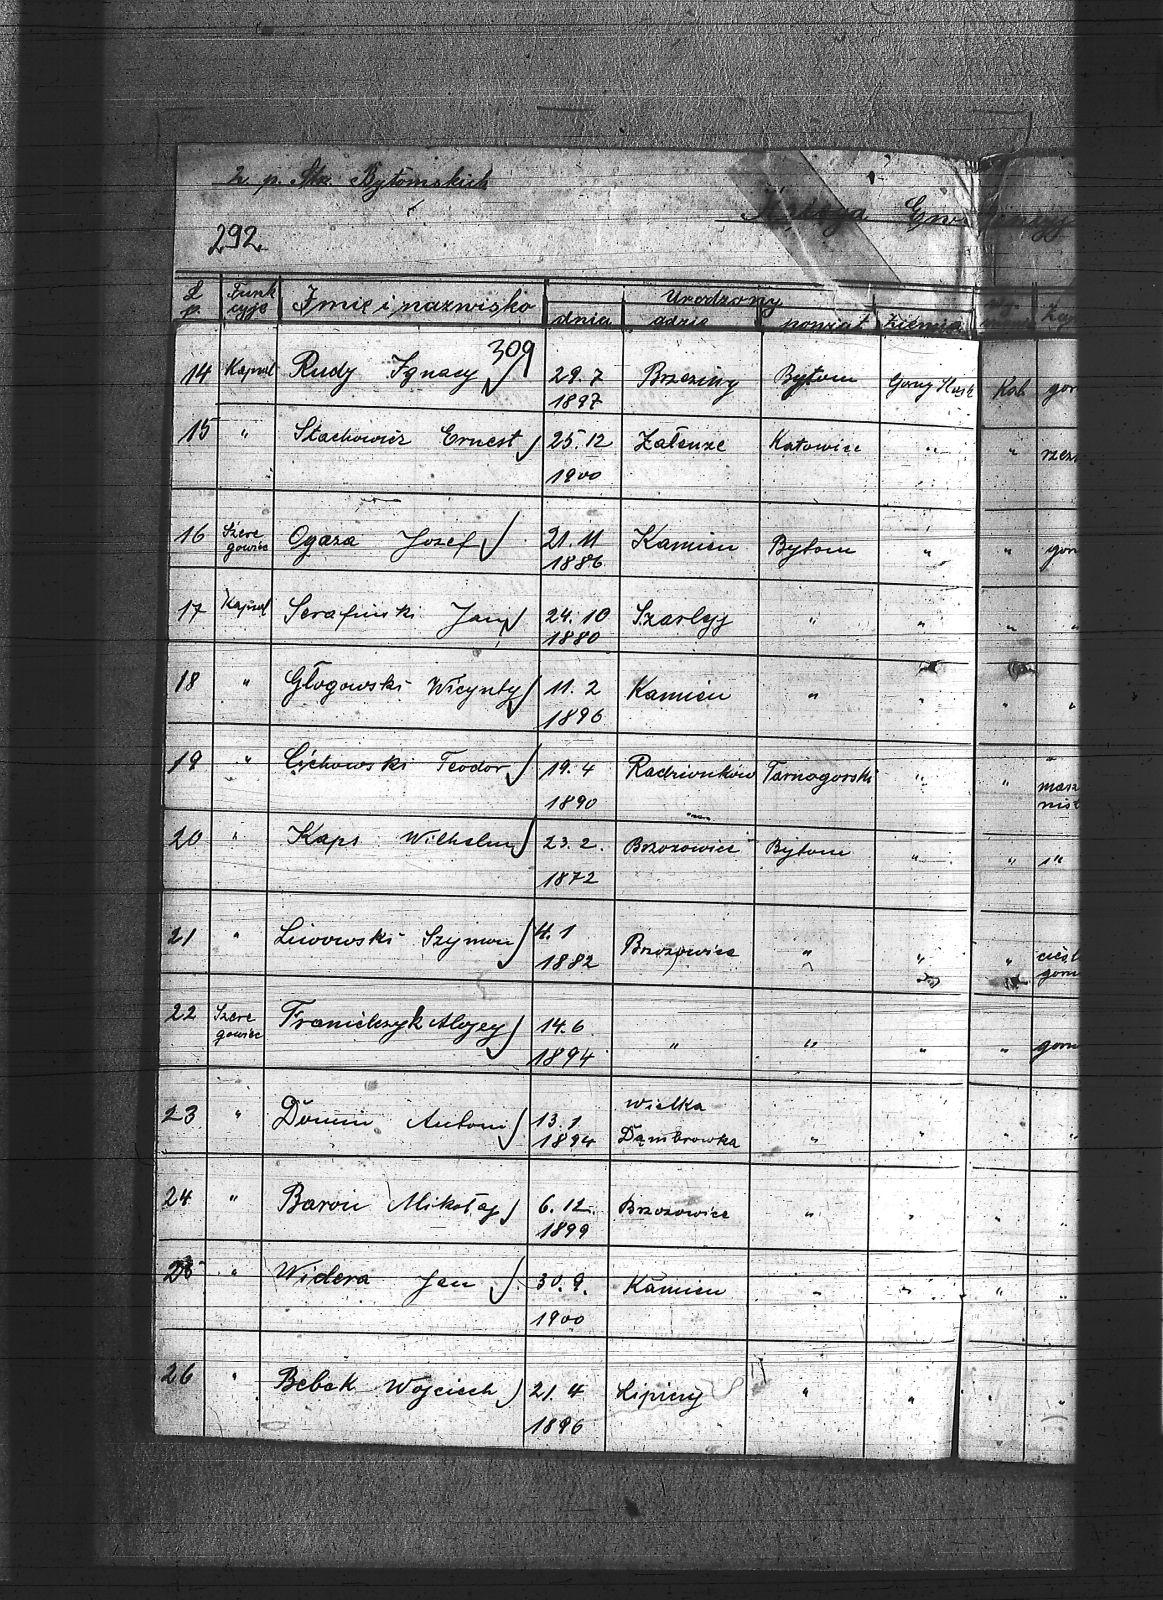 2. p. Str. Bytomskich
Księga Ewidencyj
292.
L. p. Funkcyje Imię i nazwisko Urodzony
dnia gdzie powiat Ziemia
309
14 Kapral Rudy Ignacy 29. 7 Brzeziny Bytom Gorny Śląsk Kat. gor
1897
15 " Stachowicz Ernest 25. 12 Załenze Katowice " " rzez
1900
16 Szere Ogaza Jozef 21. 11 Kamien Bytom " " gor
gowiec 1886
17 Kapral Serafinski Jan 24. 10 Szarlyj " " " "
1880
18 " Głogowski Wicynty 11. 2 Kamien " " " "
1896
19 " Cichowski Teodor 19. 4 Radzionków Tarnogorski " " masz
1890 nist
20 " Kaps Wilhelm 23. 2. Brzozowice Bytom " " "
1872
21 " Lwowski Szymon 4. 1 Brzozowice " " " cieśl
1882 gorn
22 Szere Franielczyk Alojzy 14. 6 " " " " gorn
gowiec 1894
23 " Domin Antoni 13. 1 Wielka " " " "
1894 Dąmbrowka
24 " Baron Mikołaj 6. 12. Brzozowice " " " "
1899
25 " Widera Jan 30. 9. Kamien " " " "
1900
26 " Bebek Wojciech 21. 4 Lipiny " " " "
1896